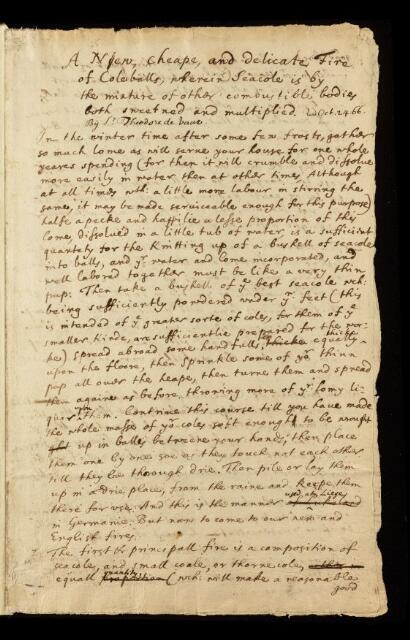 A New, cheape, and delicate Fire
of Coleballs, wherein Seacole is by
the mixture of other combustible bodies
both sweetned and multiplied
By Sr Theodore de
In the winter time after some few frosts, gather
so much lome as will serve your house for one whole
yeares spending (for then it will crumble and dissolve
more easily in water then at other times Although
at all times wth a little more labour in stirring the
same, it may be made serviceable enough for this purpose)
halfe a pecke and happilie a lesse proportion of this
lome, dissolved in a little tub of water is a sufficient
quantety for the knitting up of a bushell of seacole
into balls, and ye water and lome incorporated, and
well labored together must be like a very thin
pap: Then take a bushell of ye best seacole wch:
being sufficiently powdered under ye feet (this
is intended of ye greater sorte of coles, for them of ye
smaller kinde, are sufficientlie prepared for the wor-
ke) spread abroad some handfull thicke equally
upon the floore, then sprinkle some of yor thinn
pap all over the heape, then turne them and spread
them againe as before, throwing more of yr lomy li-
quor Continue this course till you have made
the whole masse of yor coles soft enough to be wrought
up in balles betweene your hands, then place
them one by one soe as they touch not each other
till they bee thorough drie. Then pile or lay them
up in a drie place, from the raine and keepe them
there for use. And this is the manner used att Liege
in Germanie. But now to come to our new and
English fires.
The first & principall fire is a composition of
seacole, and small coale, or thorne cole,
equall quantity (wch: will make a reasonable
good